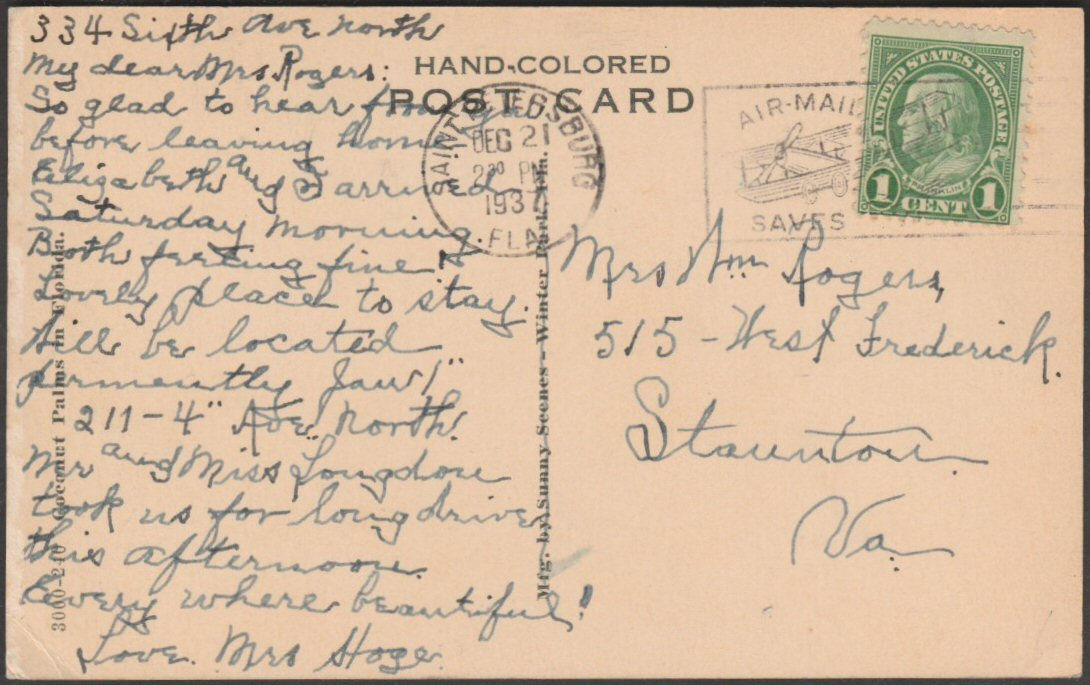 334 Sixth Ave North
My dear Mrs. Rogers:
So glad to hear from you
before leaving home
Elizabeth and I arrived
Saturday morning.
Both feeling fine.
Lovely place to stay.
Will be located
permently Jan 1"
211-4" Ave. North.
Mr and Miss Longdon
took us for long drive
this afternoon.
Every where beautiful!
Love. Mrs Hoge
HAND-COLORED
POST CARD
SAINT PETERSBURG
DEC 21
230 PM
1937
FLA.
AIR-MAIL
SAVES
UNITED STATES POSTAGE
FRANKLIN
1 CENT 1
Mrs Wm Rogers,
515-West Frederick.
Staunton.
Va.
3000-240 Coconut Palms in Florida.
Mfg. by Sunny Scenes-Winter Park, Fla.